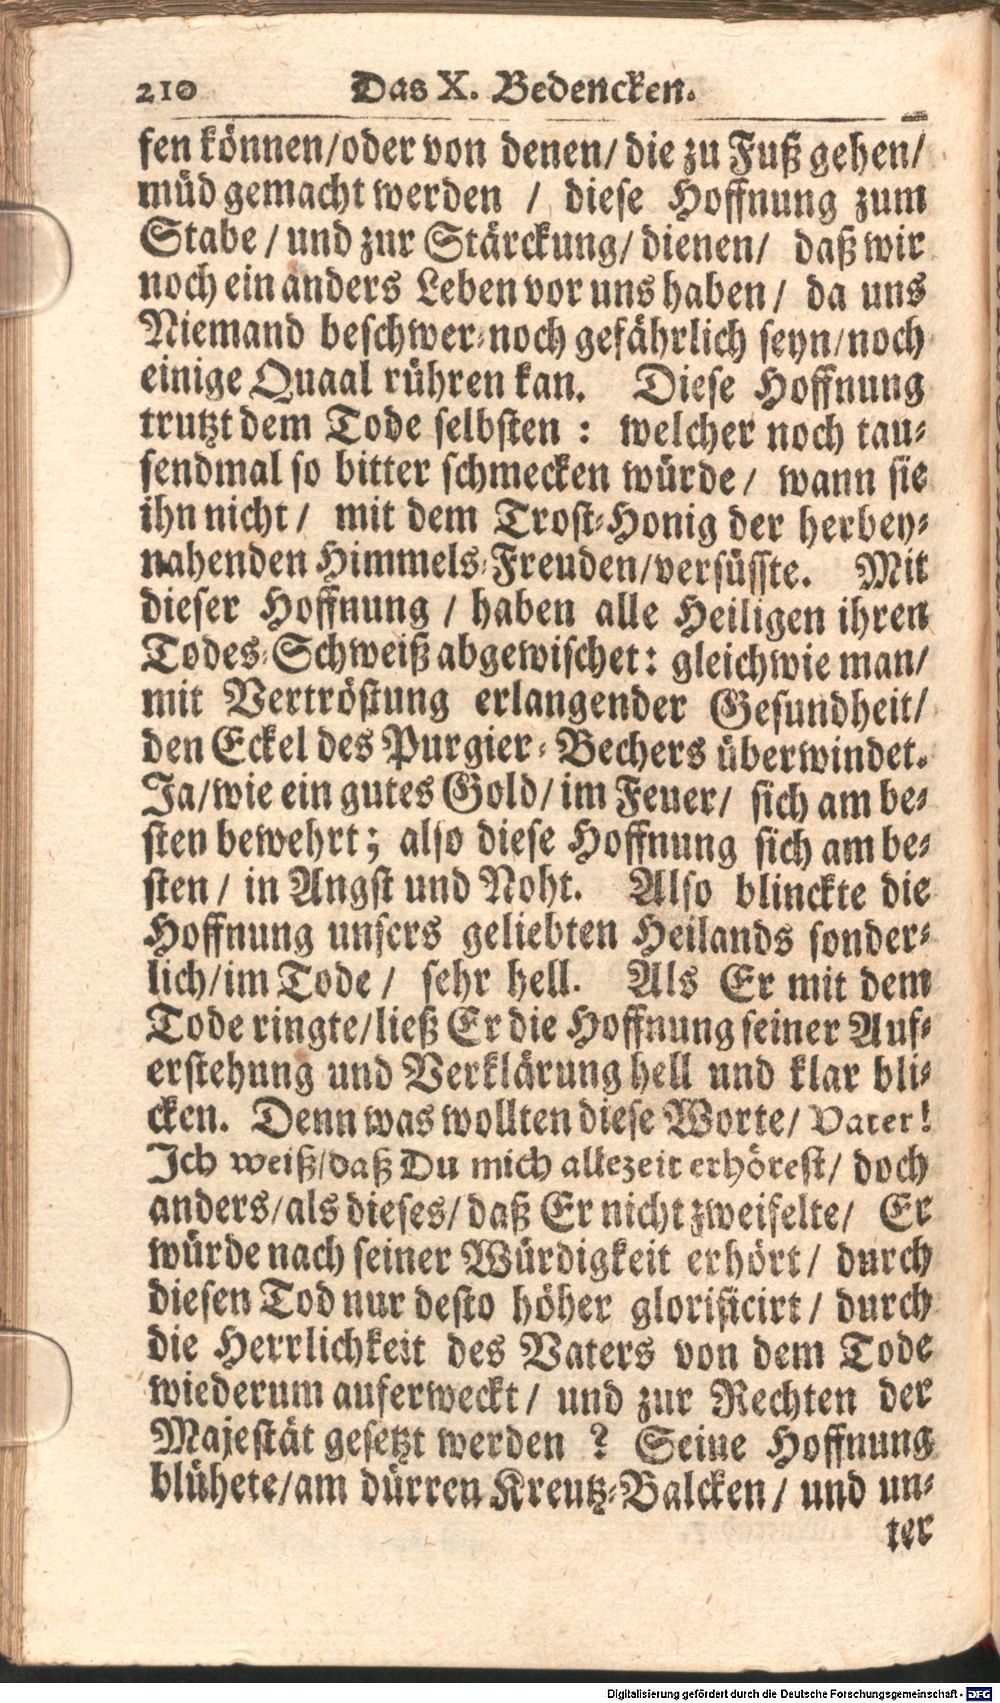 210 Das X. Bedencken.
fen können/oder von denen/ die zu Fuß gehen/
müd gemacht werden / diese Hoffnung zum
Stabe / und zur Stärckung/ dienen/ daß wir
noch ein anders Leben vor uns haben / da uns
Niemand beschwer-noch gefährlich seyn/noch
einige Quaal rühren kan. Diese Hoffnung
trutzt dem Tode selbsten : welcher noch tau-
sendmal so bitter schmecken würde / wann sie
ihn nicht / mit dem Trost-Honig der herbey-
nahenden Himmels-Freuden/versüsste. Mit
dieser Hoffnung / haben alle Heiligen ihren
Todes-Schweiß abgewischet: gleichwie man/
mit Vertröstung erlangender Gesundheit/
den Eckel des Purgier-Bechers überwindet.
Ja/wie ein gutes Gold/ im Feuer/ sich am be-
sten bewehrt; also diese Hoffnung sich am be-
sten / in Angst und Noht. Also blinckte die
Hoffnung unsers geliebten Heilands sonder-
lich/im Tode / sehr hell. Als Er mit dem
Tode ringte/ließ Er die Hoffnung seiner Auf-
erstehung und Verklärung hell und klar bli-
cken. Denn was wollten diese Worte/ Vater!
Ich weiß/daß Du mich allezeit erhörest/ doch
anders/als dieses/ daß Er nicht zweifelte/ Er
würde nach seiner Würdigkeit erhört / durch
diesen Tod nur desto höher glorificirt / durch
die Herrlichkeit des Vaters von dem Tode
wiederum auferweckt / und zur Rechten der
Majestät gesetzt werden ? Seine Hoffnung
blühete/am dürren Kreutz-Balcken / und un-
ter
Digitalisierung gefördert durch die Deutsche Forschungsgemeinschaft - DFG